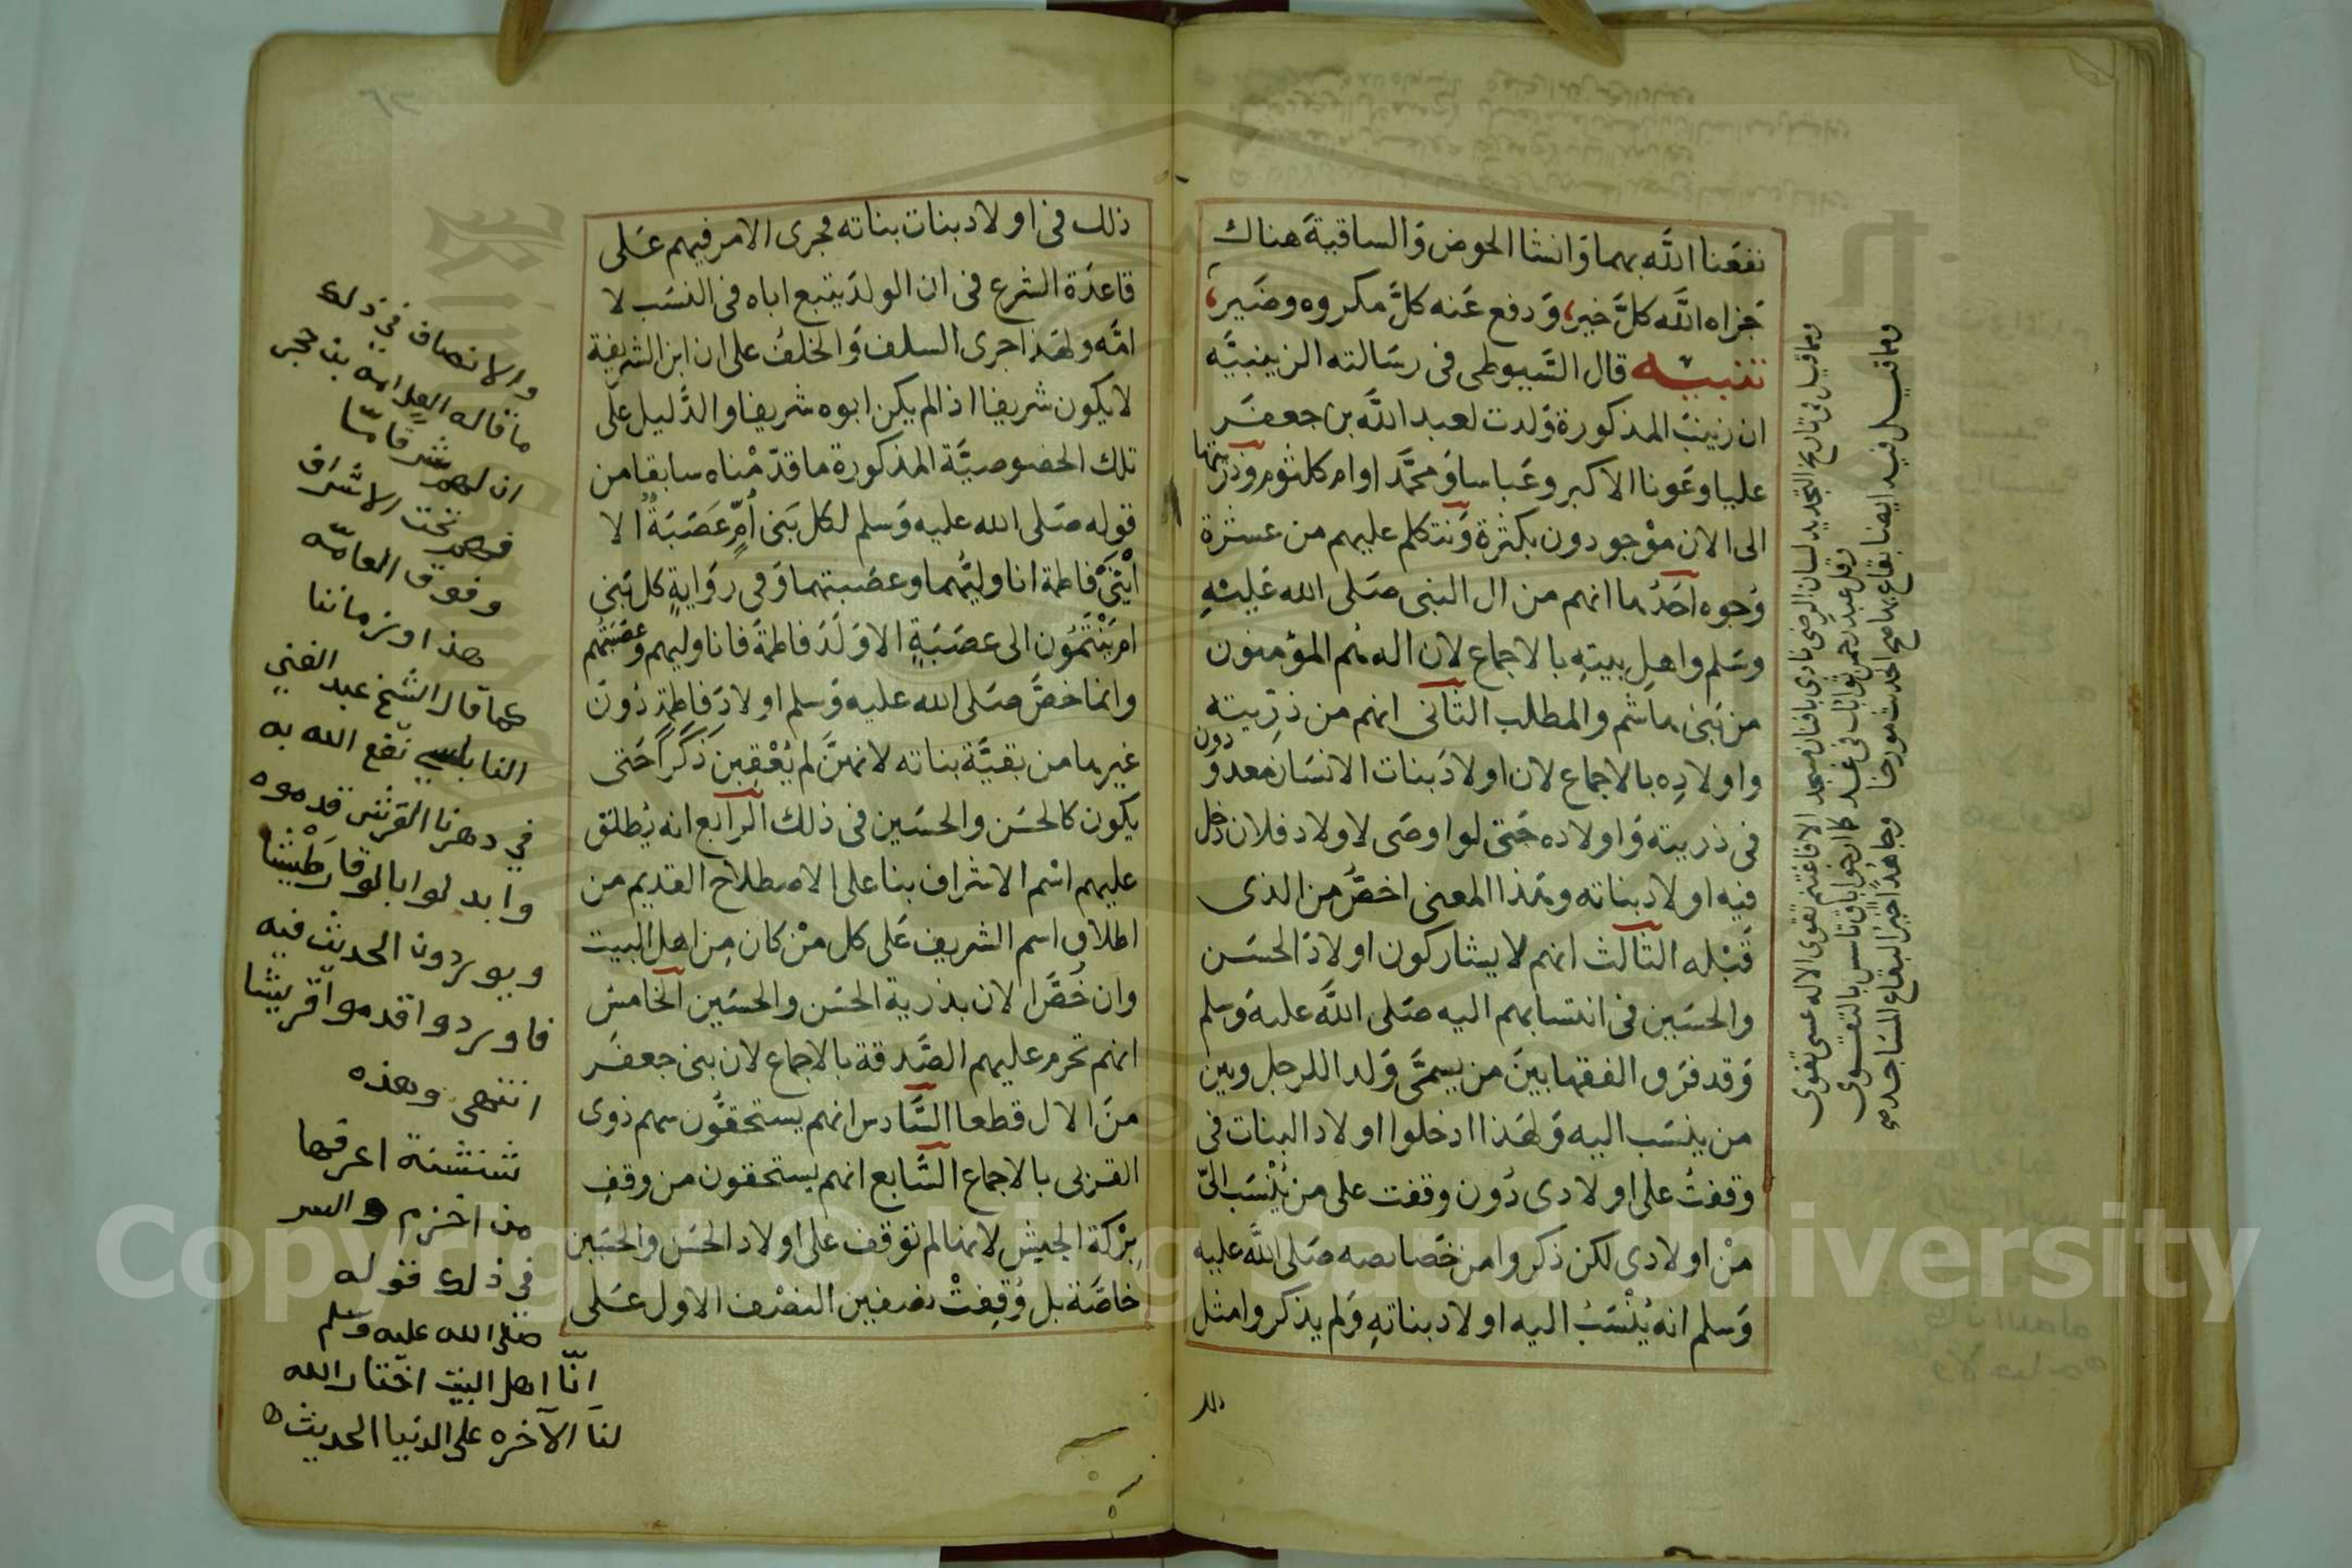 نفعنا الله بهما وانشا الحوض والساقية هناك
جزاه الله كل خير، ودفع عنه كل مكروه وضير،
تنبيه قال السيوطى فى رسالته الزينبيه
ان زينب المذكورة ولدت لعبد الله بن جعفر
عليا وعونا الاكبر وعباسا ومحمدا وام كلثوم وذريتها
الى الان موجودون بكثرة ونتكلم عليهم من عشرة
وجوه احدها انهم من ال النبى صلى الله عليه
وسلم واهل بيته بالاجماع لان اله هم المؤمنون
من بنى هاشم والمطلب الثانى انهم من ذريته
واولاده بالاجماع لان اولاد بنات الانسان معدودون
فى ذريته واولاده حتى لو اوصى لاولاد فلان دخل
فيه اولاد بناته وهذا المعنى اخص من الذى
قبله الثالث انهم لا يشاركون اولاد الحسن
والحسين فى انتسابهم اليه صلى الله عليه وسلم
وقد فرق الفقها بين من يسمى ولدا للرجل وبين
من ينسب اليه ولهذا ادخلوا اولاد البنات فى
وقفت على اولادى دون وقفت على من ينسب الى
من اولادى لكن ذكروا من خصايصه صلى الله عليه
وسلم انه ينسب اليه اولاد بناته ولم يذكروا مثل
ذلك فى اولاد بنات بناته فجرى الامر فيهم على
قاعدة الشرع فى ان الولد يتبع اباه فى النسب لا
امه ولهذا جرى السلف والخلف على ان ابن الشريفة
لا يكون شريفا اذا لم يكن ابوه شريفا والدليل على
تلك الخصوصية المذكورة ما قدمناه سابقا من
قوله صلى الله عليه وسلم لكل بنى أم عصبة الا
ابنى فاطمة انا وليهما وعصبتهما وفى رواية كل بنى
ام ينتمون الى عصبة الا ولد فاطمة فانا وليهم وعصبتهم
وانما خص صلى الله عليه وسلم اولاد فاطمة دون
غيرها من بقية بناته لانهن لم يعقبن ذكرا حتى
يكون كالحسن والحسين فى ذلك الرابع انه يطلق
عليهم اسم الاشراف بنا على الاصطلاح القديم من
اطلاق اسم الشريف على كل من كان من اهل البيت
وان خص الان بذرية الحسن والحسين الخامس
انهم تحرم عليهم الصدقة بالاجماع لان بنى جعفر
من الال قطعا السادس انهم يستحقون سهم ذوى
القربى بالاجماع السابع انهم يستحقون من وقف
بركة الجيش لانها لم توقف على اولاد الحسن والحسين
خاصة بل وقفت نصفين النصف الاول على
والانصاف في ذلك
ما قاله العلامة بن حجر
ان لهم شرفا ما
فهم تحت الاشراف
وفوق العامه
هذا وزماننا
كما قال الشيخ عبد الغني
النابلسي نفع الله به
في دهرنا القرش قدموه
وابدلوا بالوقار طيشا
ويوردون الحديث فيه
فاوردوا قدموا قريشا
انتهى وهذه
شنشنة اعرفها
من اخزم والسر
في ذلك قوله
صلى الله عليه وسلم
انا اهل البيت اختار الله
لنا الآخره على الدنيا الحديث
Copyright © King Saud University